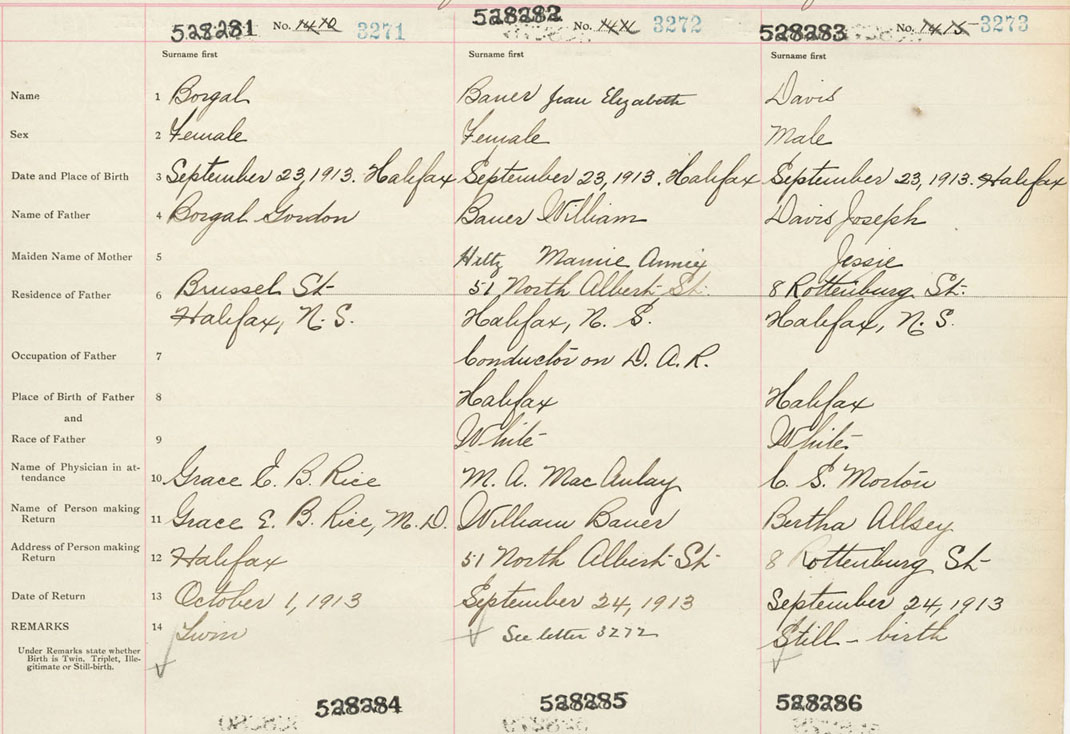 528281 No. 3271 528282 No. 3272 528283 No. 3273
Surname first Surname first Surname first
Name 1 Borgal Bauer Jean Elizabeth Davis
Sex 2 Female Female Male
Date and Place of Birth 3 September 23, 1913. Halifax September 23, 1913. Halifax September 23, 1913. Halifax
Name of Father 4 Borgal Gordon Bauer William Davis Joseph
Maiden Name of Mother 5 Hiltz Mamie Jessie
Residence of Father 6 Brussel St. 51 North Albert St. 8 Rottenburg St.
Halifax, N. S. Halifax, N. S. Halifax, N. S.
Occupation of Father 7 Conductor on D. A. R.
Place of Birth of Father 8 Halifax Halifax
and
Race of Father 9 White White
Name of Physician in at-
tendance 10 Grace E. B. Rice M. A. MacAulay C. S. Morton
Name of Person making
Return 11 Grace E. B. Rice, M. D. William Bauer Bertha Allsey
Address of Person making
Return 12 Halifax 51 North Albert St 8 Rottenburg St
Date of Return 13 October 1, 1913 September 24, 1913 September 24, 1913
REMARKS 14 Twin See letter 3272 Still - birth
Under Remarks state whether
Birth is Twin, Triplet, Ille-
gitimate or Still-birth.
528284 528285 528286